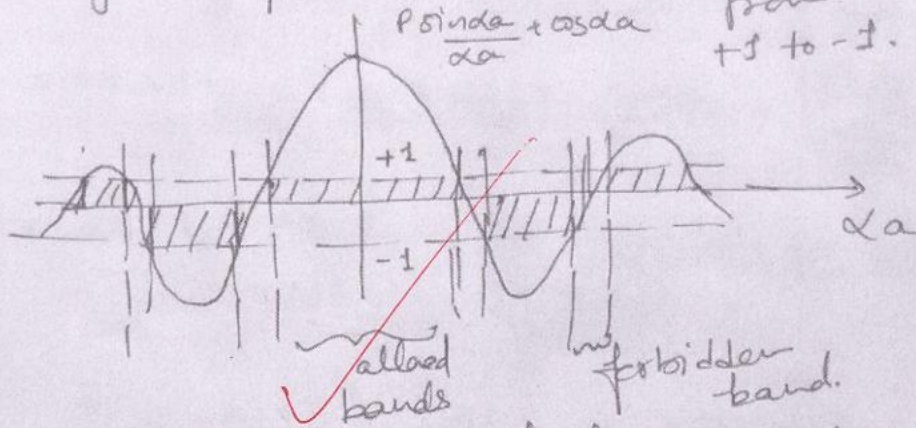 P sinαa / αa + cosαa
+1 to -1.
+1
-1
αa
allaed
bands
forbidden
band.